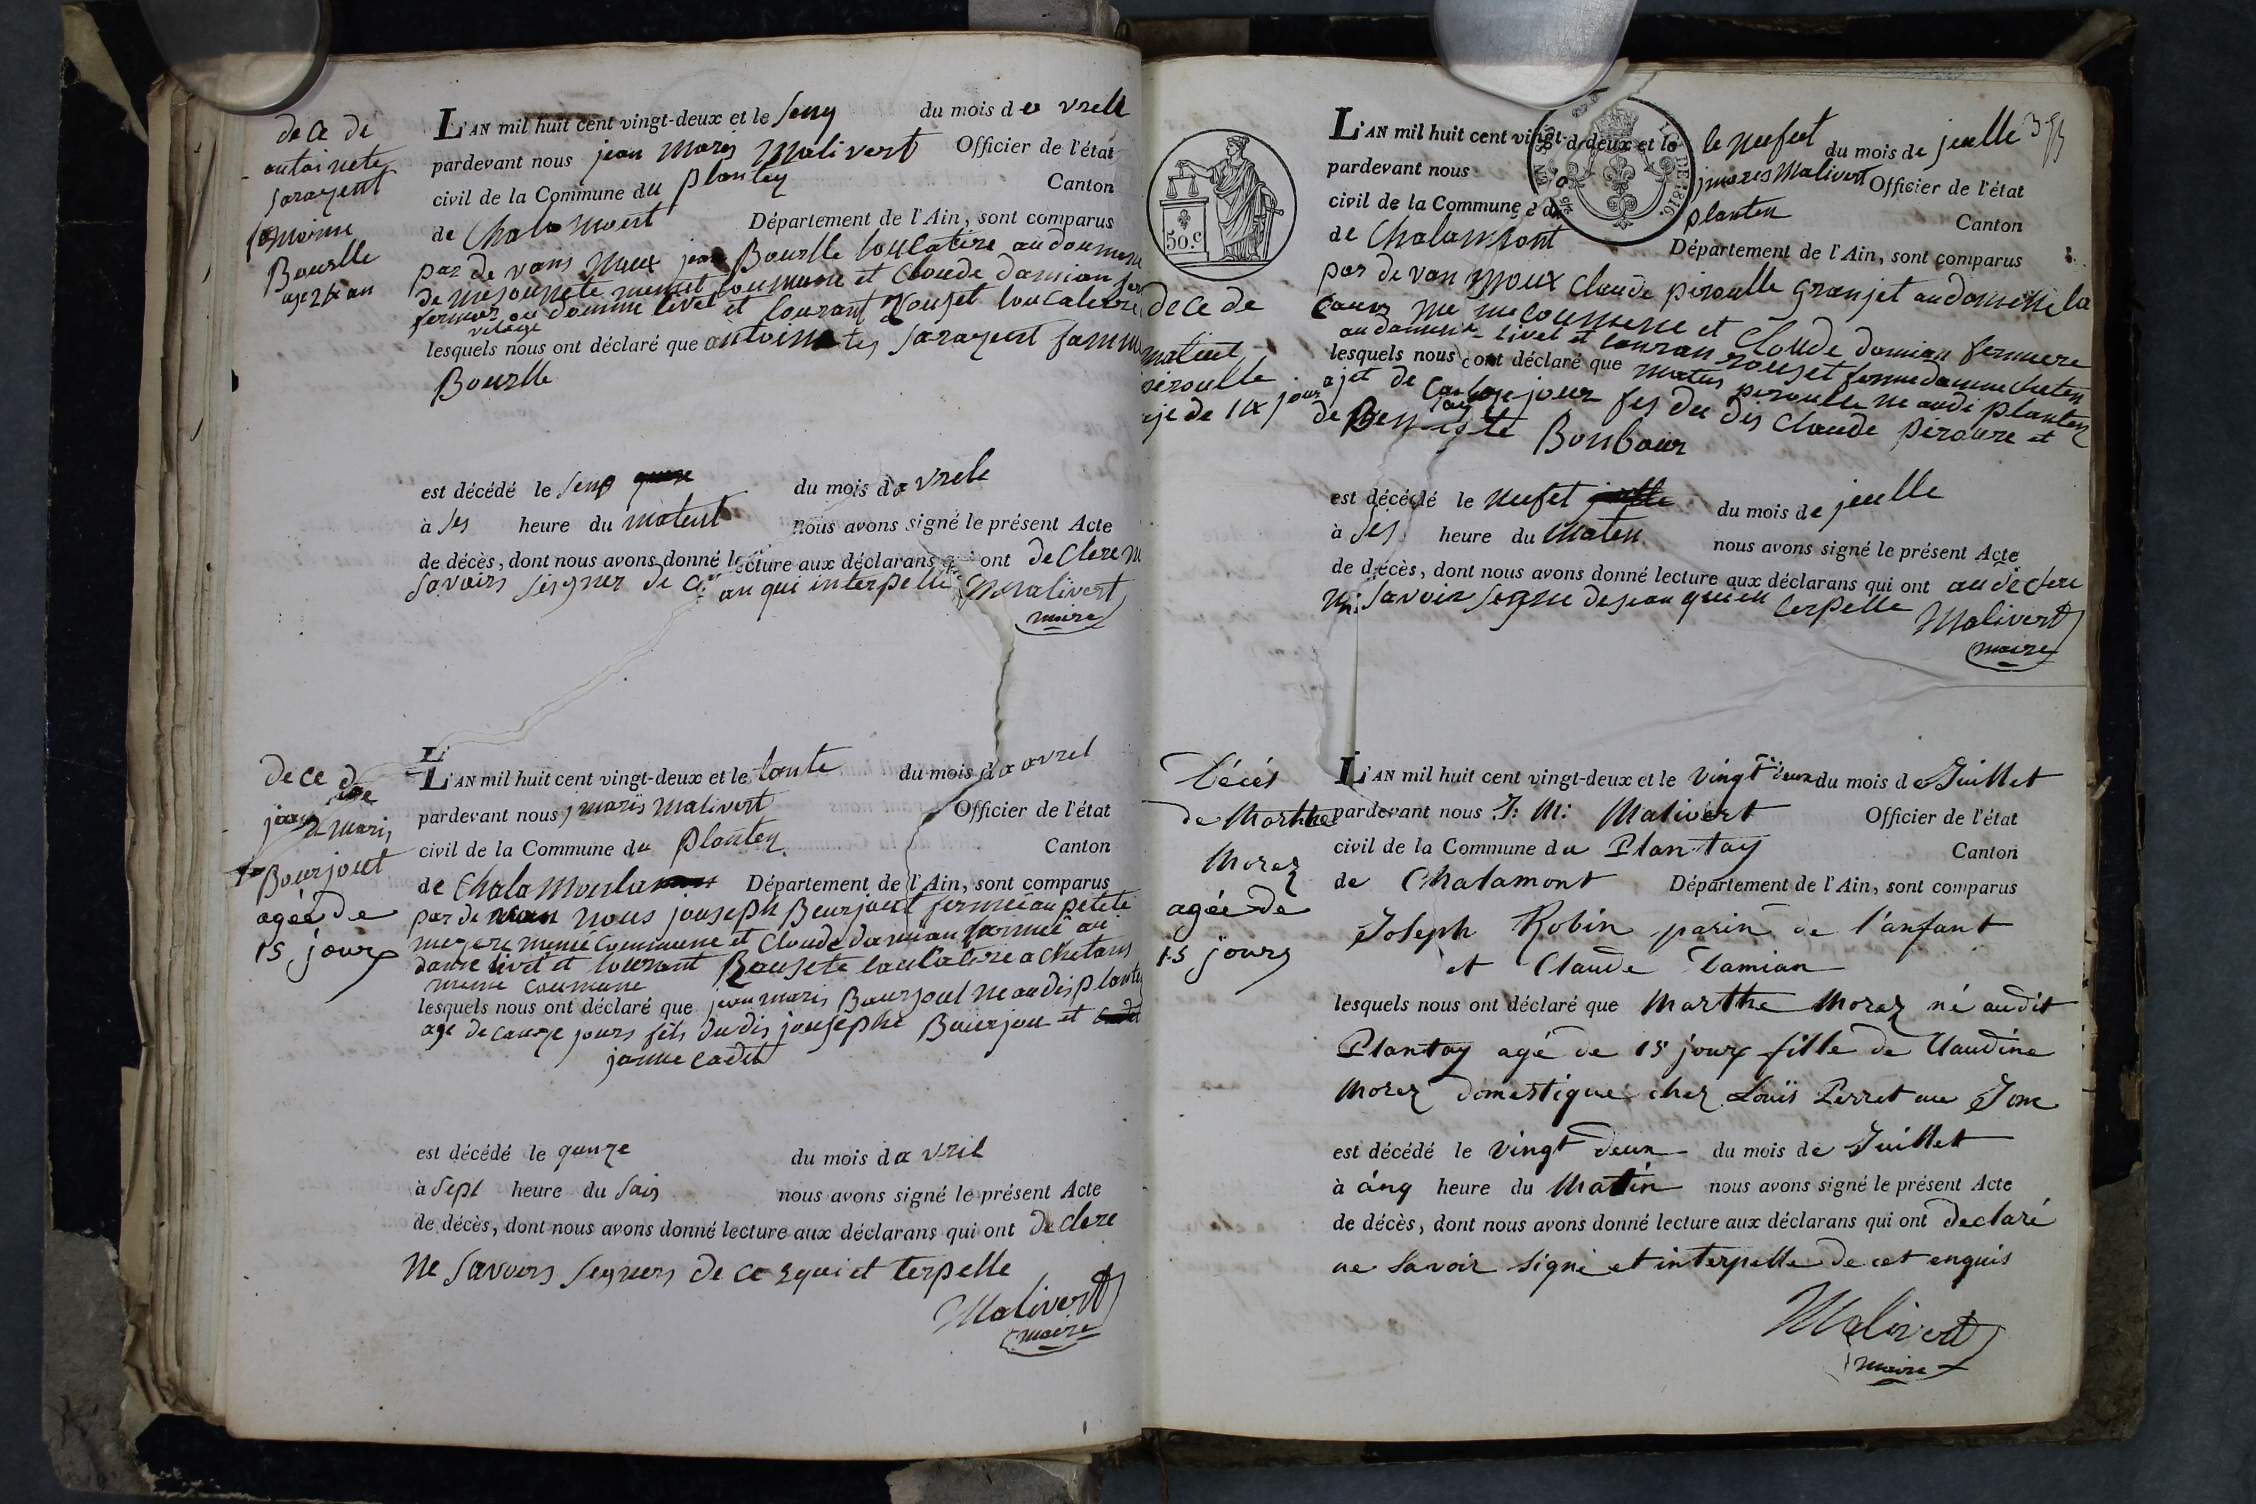 dece de
antoinete
sarazent
famme
Bourlle
age 26 an
L'AN mil huit cent vingt-deux et le senq du mois de avrell
pardevant nous jean maris Malivert Officier de l'état
civil de la Commune du plantey Canton
de Chalamont Département de l'Ain, sont comparus
par de vans noux jean Bourlle loucatire au doumene
de mesounete meme coumune et Cloude damian
fermier au domme livet et lourant Rouset loucaterre
vilage
lesquels nous ont déclaré que antoinetes sarazent famme
Bourlle
est décédé le senq du mois d avrele
à ses heure du mateut nous avons signé le présent Acte
de décès, dont nous avons donné lecture aux déclarans qui ont declere ne
savoirs seigner de ce an qui interpelle Malivert
maire
dece de
jean maris
Bourjout
agée de
15 jours
L'AN mil huit cent vingt-deux et le tonte du mois d avrel
pardevant nous j maris Malivert Officier de l'état
civil de la Commune du Plantey Canton
de Chalamon Département de l'Ain, sont comparus
par de van nous jouseph Bourjout fermié au petete
mezere meme commune et Cloude damian formié au
dame livet et lourant Rousete loucatere a Chetans
meme coumune
lesquels nous ont déclaré que jean maris Bourjout ne au dis plantey
age de cauze jours fils du dis jousephe Bourjou et
janne cadit
est décédé le qunze du mois d avril
à sept heure du soir nous avons signé le présent Acte
de décès, dont nous avons donné lecture aux déclarans qui ont declere
ne savoirs segners de ce equi et terpelle
Malivert
maire
50.c
dece de
mateut
piroulle
aje de 14 jour
L'AN mil huit cent vingt-deux et le le neufet du mois de juelle
pardevant nous j mares Malivert Officier de l'état
civil de la Commune du planten Canton
de Chalamont Département de l'Ain, sont comparus
par de van noux Claude piroulle granjet au doumene la
meme coumene et Cloude damian fermiere
au doumene livet et lauran rouset ferme damme cheten
lesquels nous ont déclaré que mateus piroulle ne au di planten
ajet de jour fis du dis Claude piroure et
de Bonbour
est décédé le neufet du mois de juelle
à ses heure du maten nous avons signé le présent Acte
de décès, dont nous avons donné lecture aux déclarans qui ont au declere
ne savoir segne deseau qui en terpelle Malivert
maire
Décés
de Marthe
Morez
agée de
15 jours
L'AN mil huit cent vingt-deux et le vingt deux du mois de Juillet
pardevant nous J: M: Malivert Officier de l'état
civil de la Commune du Plantay Canton
de Chalamont Département de l'Ain, sont comparus
Joseph Robin parin de l'anfant
et Claude Damian
lesquels nous ont déclaré que Marthe Morez né audit
Plantay agé de 15 jours fille de Claudine
Morez domestique chez Louïs Perret au Jonc
est décédé le vingt deux du mois de Juillet
à cinq heure du Matin nous avons signé le présent Acte
de décès, dont nous avons donné lecture aux déclarans qui ont declaré
ne savoir signé et interpelle de cet enquis
Malivert
maire